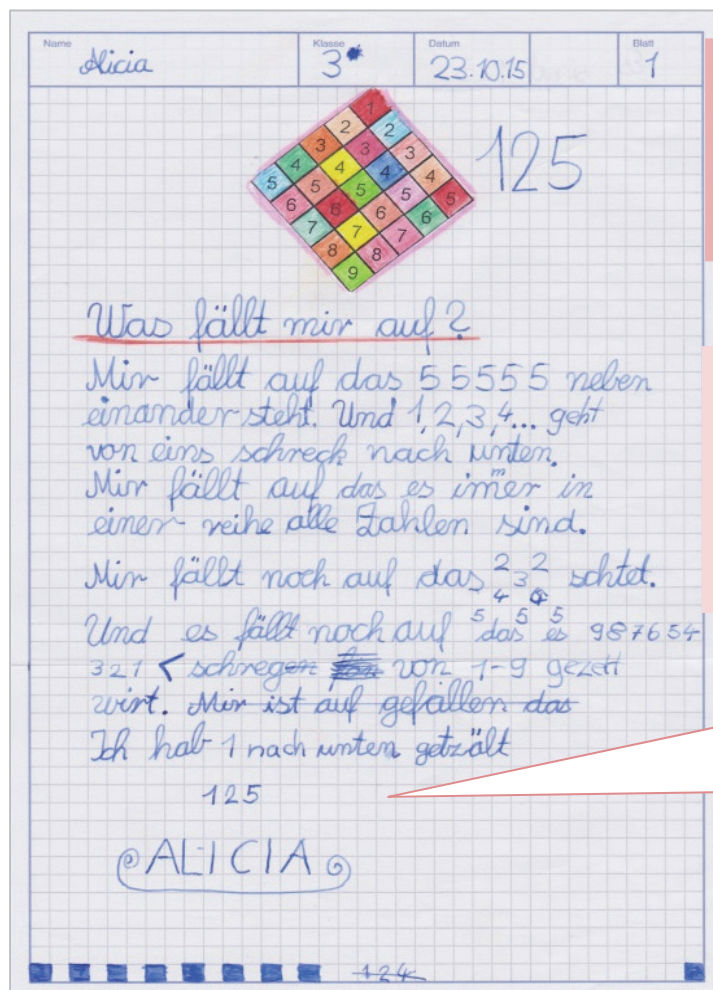 Name Alicia Klasse 3* Datum 23.10.15 Blatt 1
1
2 2
3 3 3
4 4 4 4
5 5 5 5 5
6 6 6 6
7 7 7
8 8
9
125
Was fällt mir auf?
Mir fällt auf das 5 5 5 5 5 neben
einander steht. Und 1,2,3,4... geht
von eins schreck nach unten.
Mir fällt auf das es immer in
einer reihe alle Zahlen sind.
Mir fällt noch auf das 2 3 2 schtet.
4 4
5 5 5
Und es fällt noch auf das es 987654
321 < schregen von 1-9 gezelt
wirt. Mir ist auf gefallen das
Ich hab 1 nach unten getzält
125
ALICIA
124